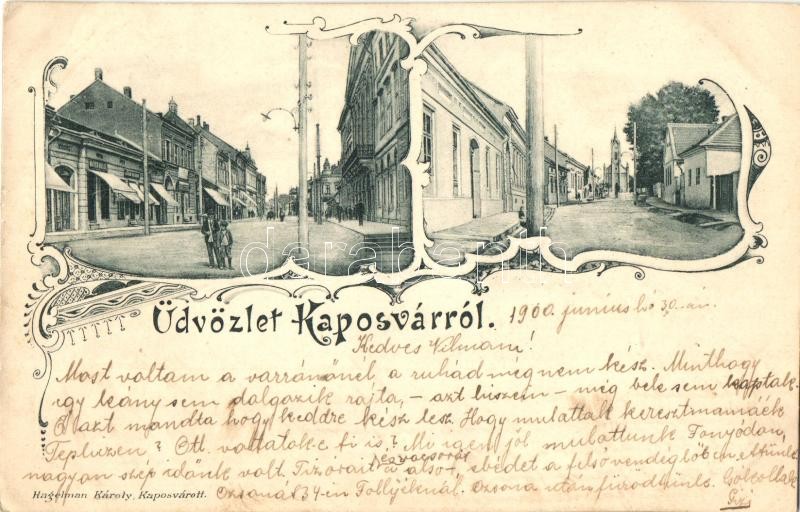 Üdvözlet Kaposvárról.
1900. junius hó 30.-án.
Kedves Vilmám!
Most voltam a varrónőnél, a ruhád még nem kész. Minthogy
egy leány sem dolgozik rajta, – azt hiszem – még bele sem kaptak.
Ő azt mondta hogy keddre kész lesz. Hogy mulattak keresztmamáék
Tepliczen? Ott voltatok e ti is? Mi igen jól mulattunk Fonyódon,
nagyon szép időnk volt. Tizórait a alsó-, ebédet a felsővendéglőben ettünk
és vacsorát
Ozsonát 1/4-in Follyéknál. Ozsona után fürödtünk. Csókollak
Gizi
Hagelman Károly, Kaposvárott.
darabanth.com